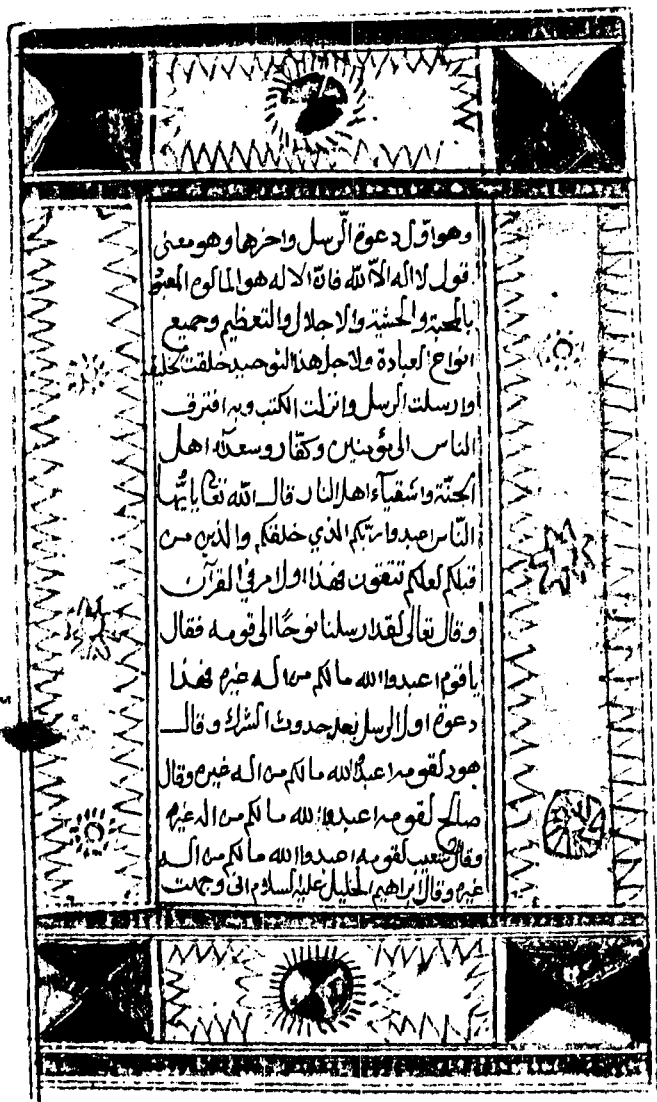 وهو اوّل دعوة الرّسل واخرها وهو معنى
قول لا اله الاّ الله فانّ الاله هو المالوه المعبود
بالمحبة والخشية والاجلال والتعظيم وجميع
انواع العبادة ولاجل هذا التوحيد خلقت الخليقة
وارسلت الرسل وانزلت الكتب وبه افترق
الناس الى مؤمنين وكفّار وسعدآء اهل
الجنّة واشقيآء اهل النار قال الله تعا يايّها
النّاس اعبدوا ربّكم الذي خلقكم والذين من
قبلكم لعلكم تتقون فهذا اول امر في القرآن
وقال تعالى لقد ارسلنا نوحًا الى قومه فقال
يا قوم اعبدوا الله ما لكم من اله غيره فهذا
دعوة اول الرسل بعد حدوث الشرك وقال
هود لقومه اعبدوا الله ما لكم من اله غيره وقال
صالح لقومه اعبدوا الله ما لكم من اله غيره
وقال شعيب لقومه اعبدوا الله ما لكم من اله
غيره وقال ابراهيم الخليل عليه السلام انى وجهت